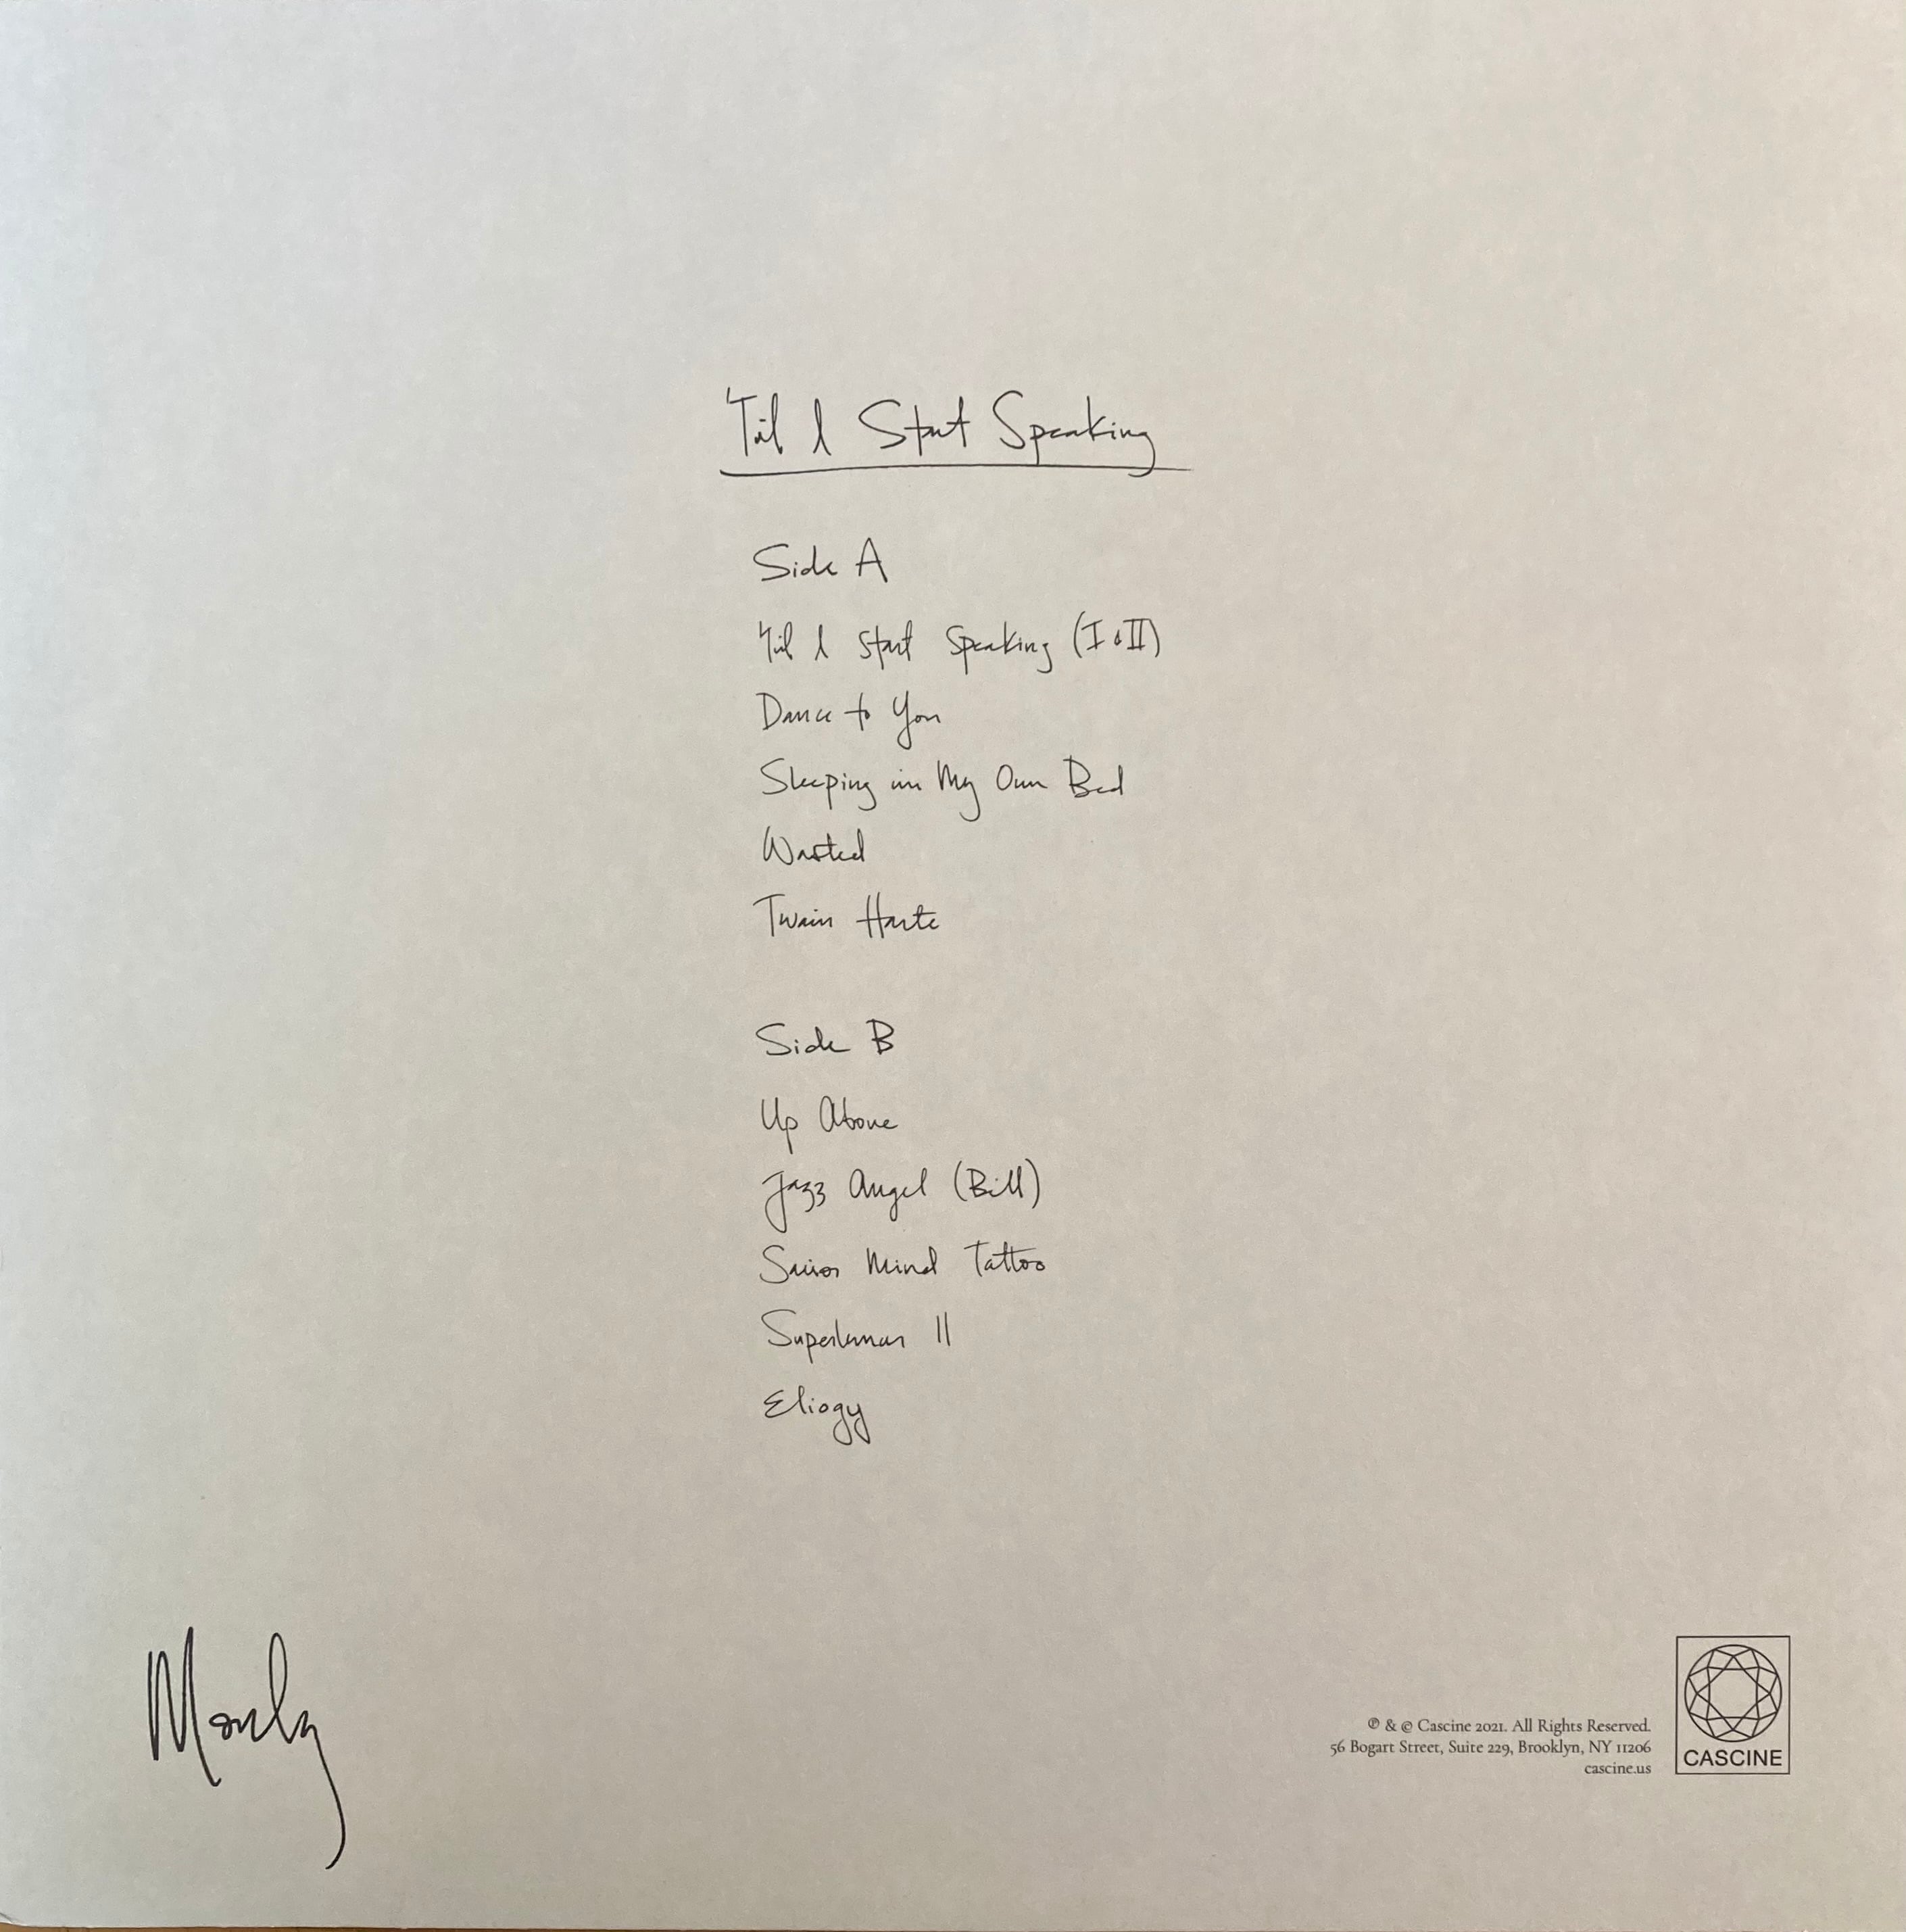 'Til I Start Speaking
Side A
'Til I Start Speaking (I & II)
Dance to You
Sleeping in My Own Bed
Wasted
Twain Harte
Side B
Up Above
Jazz Angel (Bill)
Savior Mind Tattoo
Superlunar II
Eliogy
Morly
℗ & © Cascine 2021. All Rights Reserved.
56 Bogart Street, Suite 229, Brooklyn, NY 11206
cascine.us
CASCINE